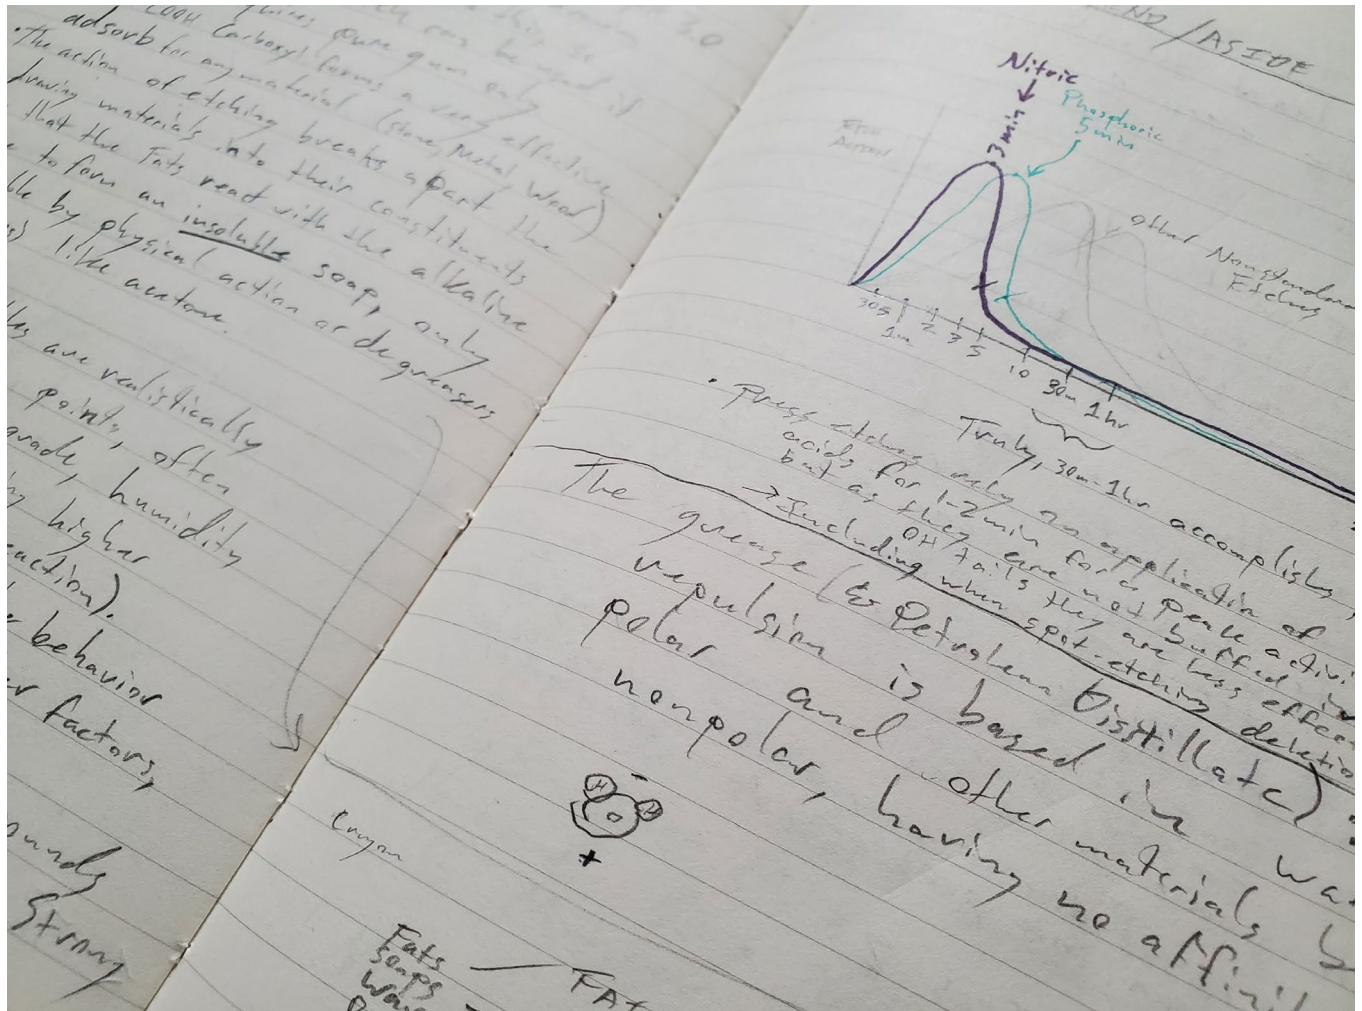 3.0
pure gum only
can be used if
COOH Carboxyl forms a very effective
adsorb for any material (stone, Metal, Wood)
• The action of etching breaks apart the
drawing materials into their constituents
that the Fats react with the alkaline
to form an insoluble soap, only
by physical action or degreasers
like acetone.
are realistically
points, often
grade, humidity
higher
action).
behavior
factors,
Strong
/ASIDE
Nitric
3 min
Phosphoric
5 min
Etch
Action
other Nonstandard
Etches
30s 1m 2 3 5 10 30m 1hr
Truly, 30m-1hr accomplishes
• Press etching only an application of
acids for 1-2 min for a peak activi
but as they are not buffed in
OH tails they are less effect
→ Including when spot-etching deletion
The grease (& Petroleum Distillate)
repulsion is based in wa
polar and other materials b
nonpolar, having no affini
-
H H
O
+
Crayon
Fats
soaps
Wa
FAT